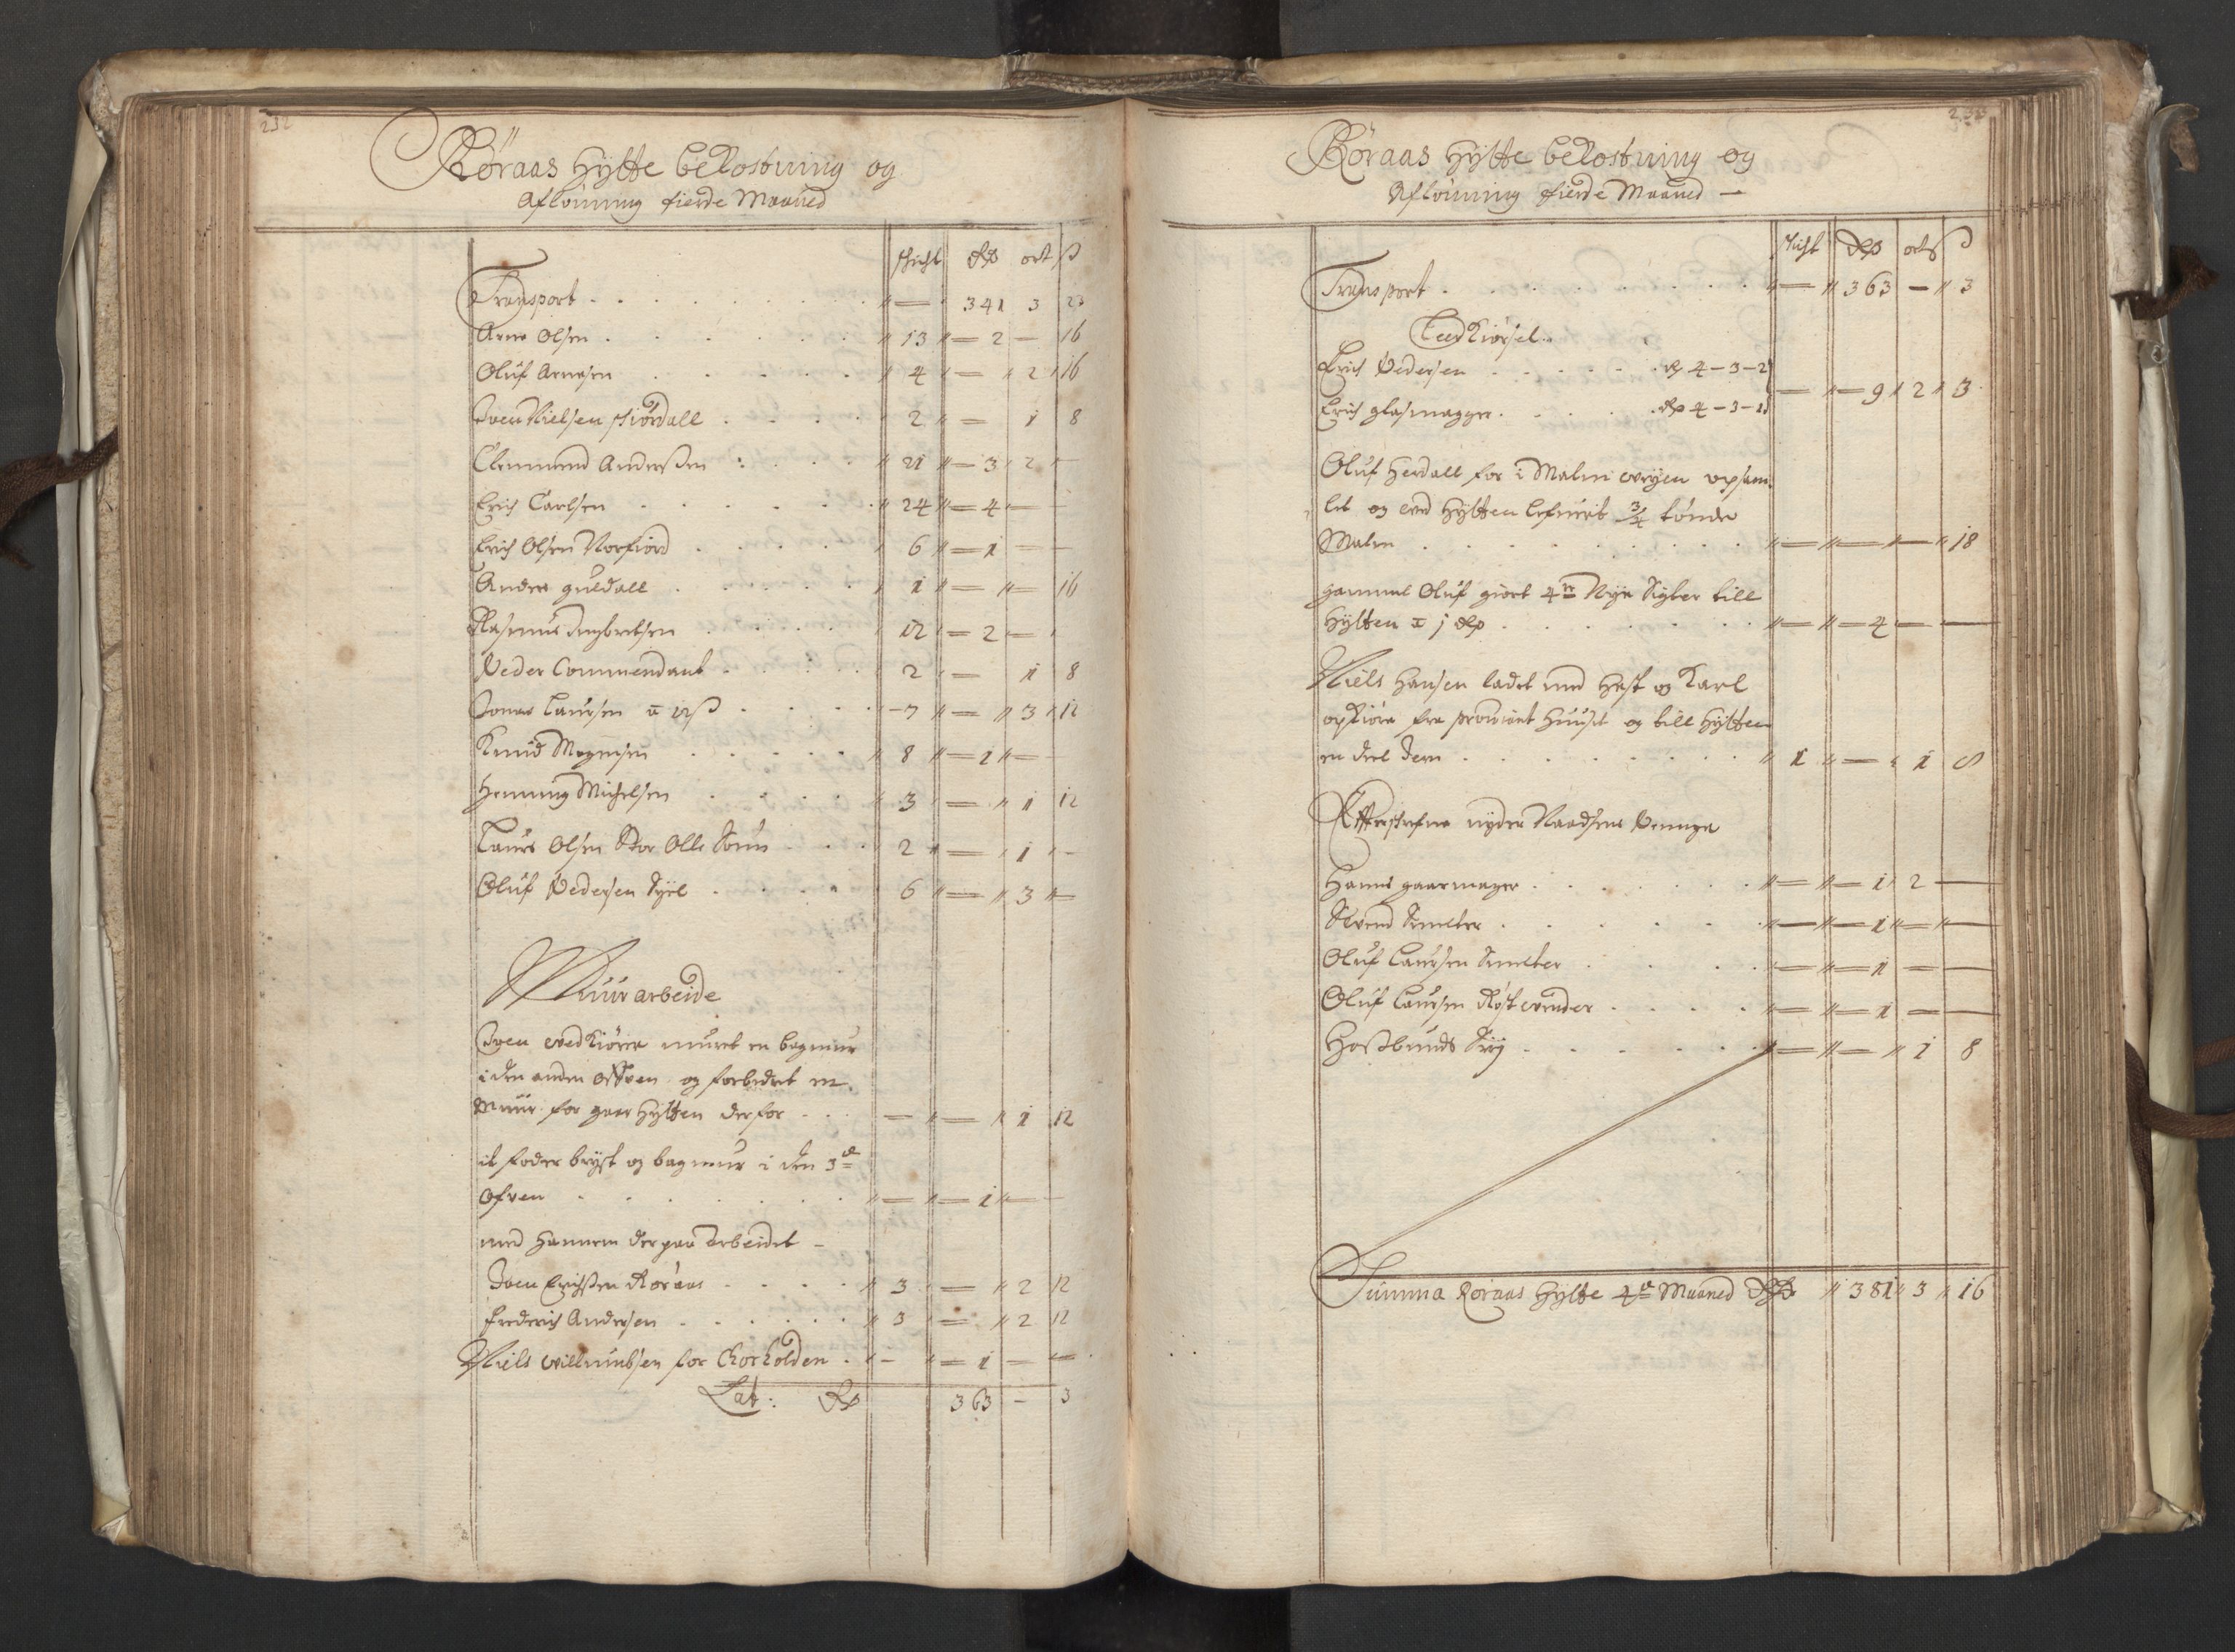 232
Röraas Hÿtte bekostning og
Aflönning fierde Maaned
schicht dlr ort ß
Transport . . . 341 3 23
Arne Olsen . . . 13 — 2 — 16
Oluf Arnesen . . . 4 — 2 16
Iven Nielsen Stiördall . . . 2 — 1 8
Clemmend Anderßen . . . 21 — 3 2 —
Erich Carlsen . . . 24 — 4 —
Erich Olsen Norfiord . . . 6 — 1 — —
Anders guldall . . . 1 — — 16
Rasmus Ingbretsen . . . 12 — 2 —
Peder Commendant . . . 2 — 1 8
Jonas Laursen a 12 ß . . . 7 — 3 12
Knud Mogensen . . . 8 — 1 —
Henning Michelsen . . . 3 — 1 12
Laurs Olsen Stor Olls Sönn . . . 2 — 1 —
Oluf Pedersen Sÿel . . . 6 — 3 —
Muurarbeide
Iven vedkiörer muret en bagmur
i den anden Offven og forbedret en
Muur for gaar Hÿtten derfor . . . — — 1 12
it foder brÿst og bagmur i den 3de
Ofven . . . — — 1 —
med hannem derpaa arbeidet —
Iven Erichßen Röraas . . . 3 — 2 12
Frederich Andersen . . . 3 — 2 12
Niels Willumbsen for Chorholden . — — 1 — —
Lat: Rdlr 363 — 3
233
Röraas Hÿtte bekostning og
Aflönning fierde Maaned —
schicht dlr ort ß
Transport . . . — 363 — 3
Leedkiörsel
Erich Pedersen . . . dlr 4 – 3 – 2
— — 9 2 3
Erich glasmagger . . . dlr 4 – 3 – 1
Oluf Herdall for i Malm veÿen opsam
let og ved Hÿtten lefuerit 3/4 tönde
Malm . . . — — — 18
gammel Oluf giort 4re Nÿe Sigter till
Hÿtten a j dlr . . . — — 4 — —
Niels Hansen ladet med Hest og Karl
opkiöre fra proviant Huuset og till Hÿtten
en deel Jern . . . 1 — 1 8
Efterschrefne nÿder Naadsens Penge
Hanns gaarmager . . . — — 1 2 —
Svend Smelter . . . — — 1 — —
Oluf Laursen Smelter . . . — — 1 — —
Oluf Laursen Röstvender . . . — — 1 — —
Hoßbunds Siri . . . — — 1 8
Summa Röraas Hÿtte 4de Maaned Rdlr 381 3 16